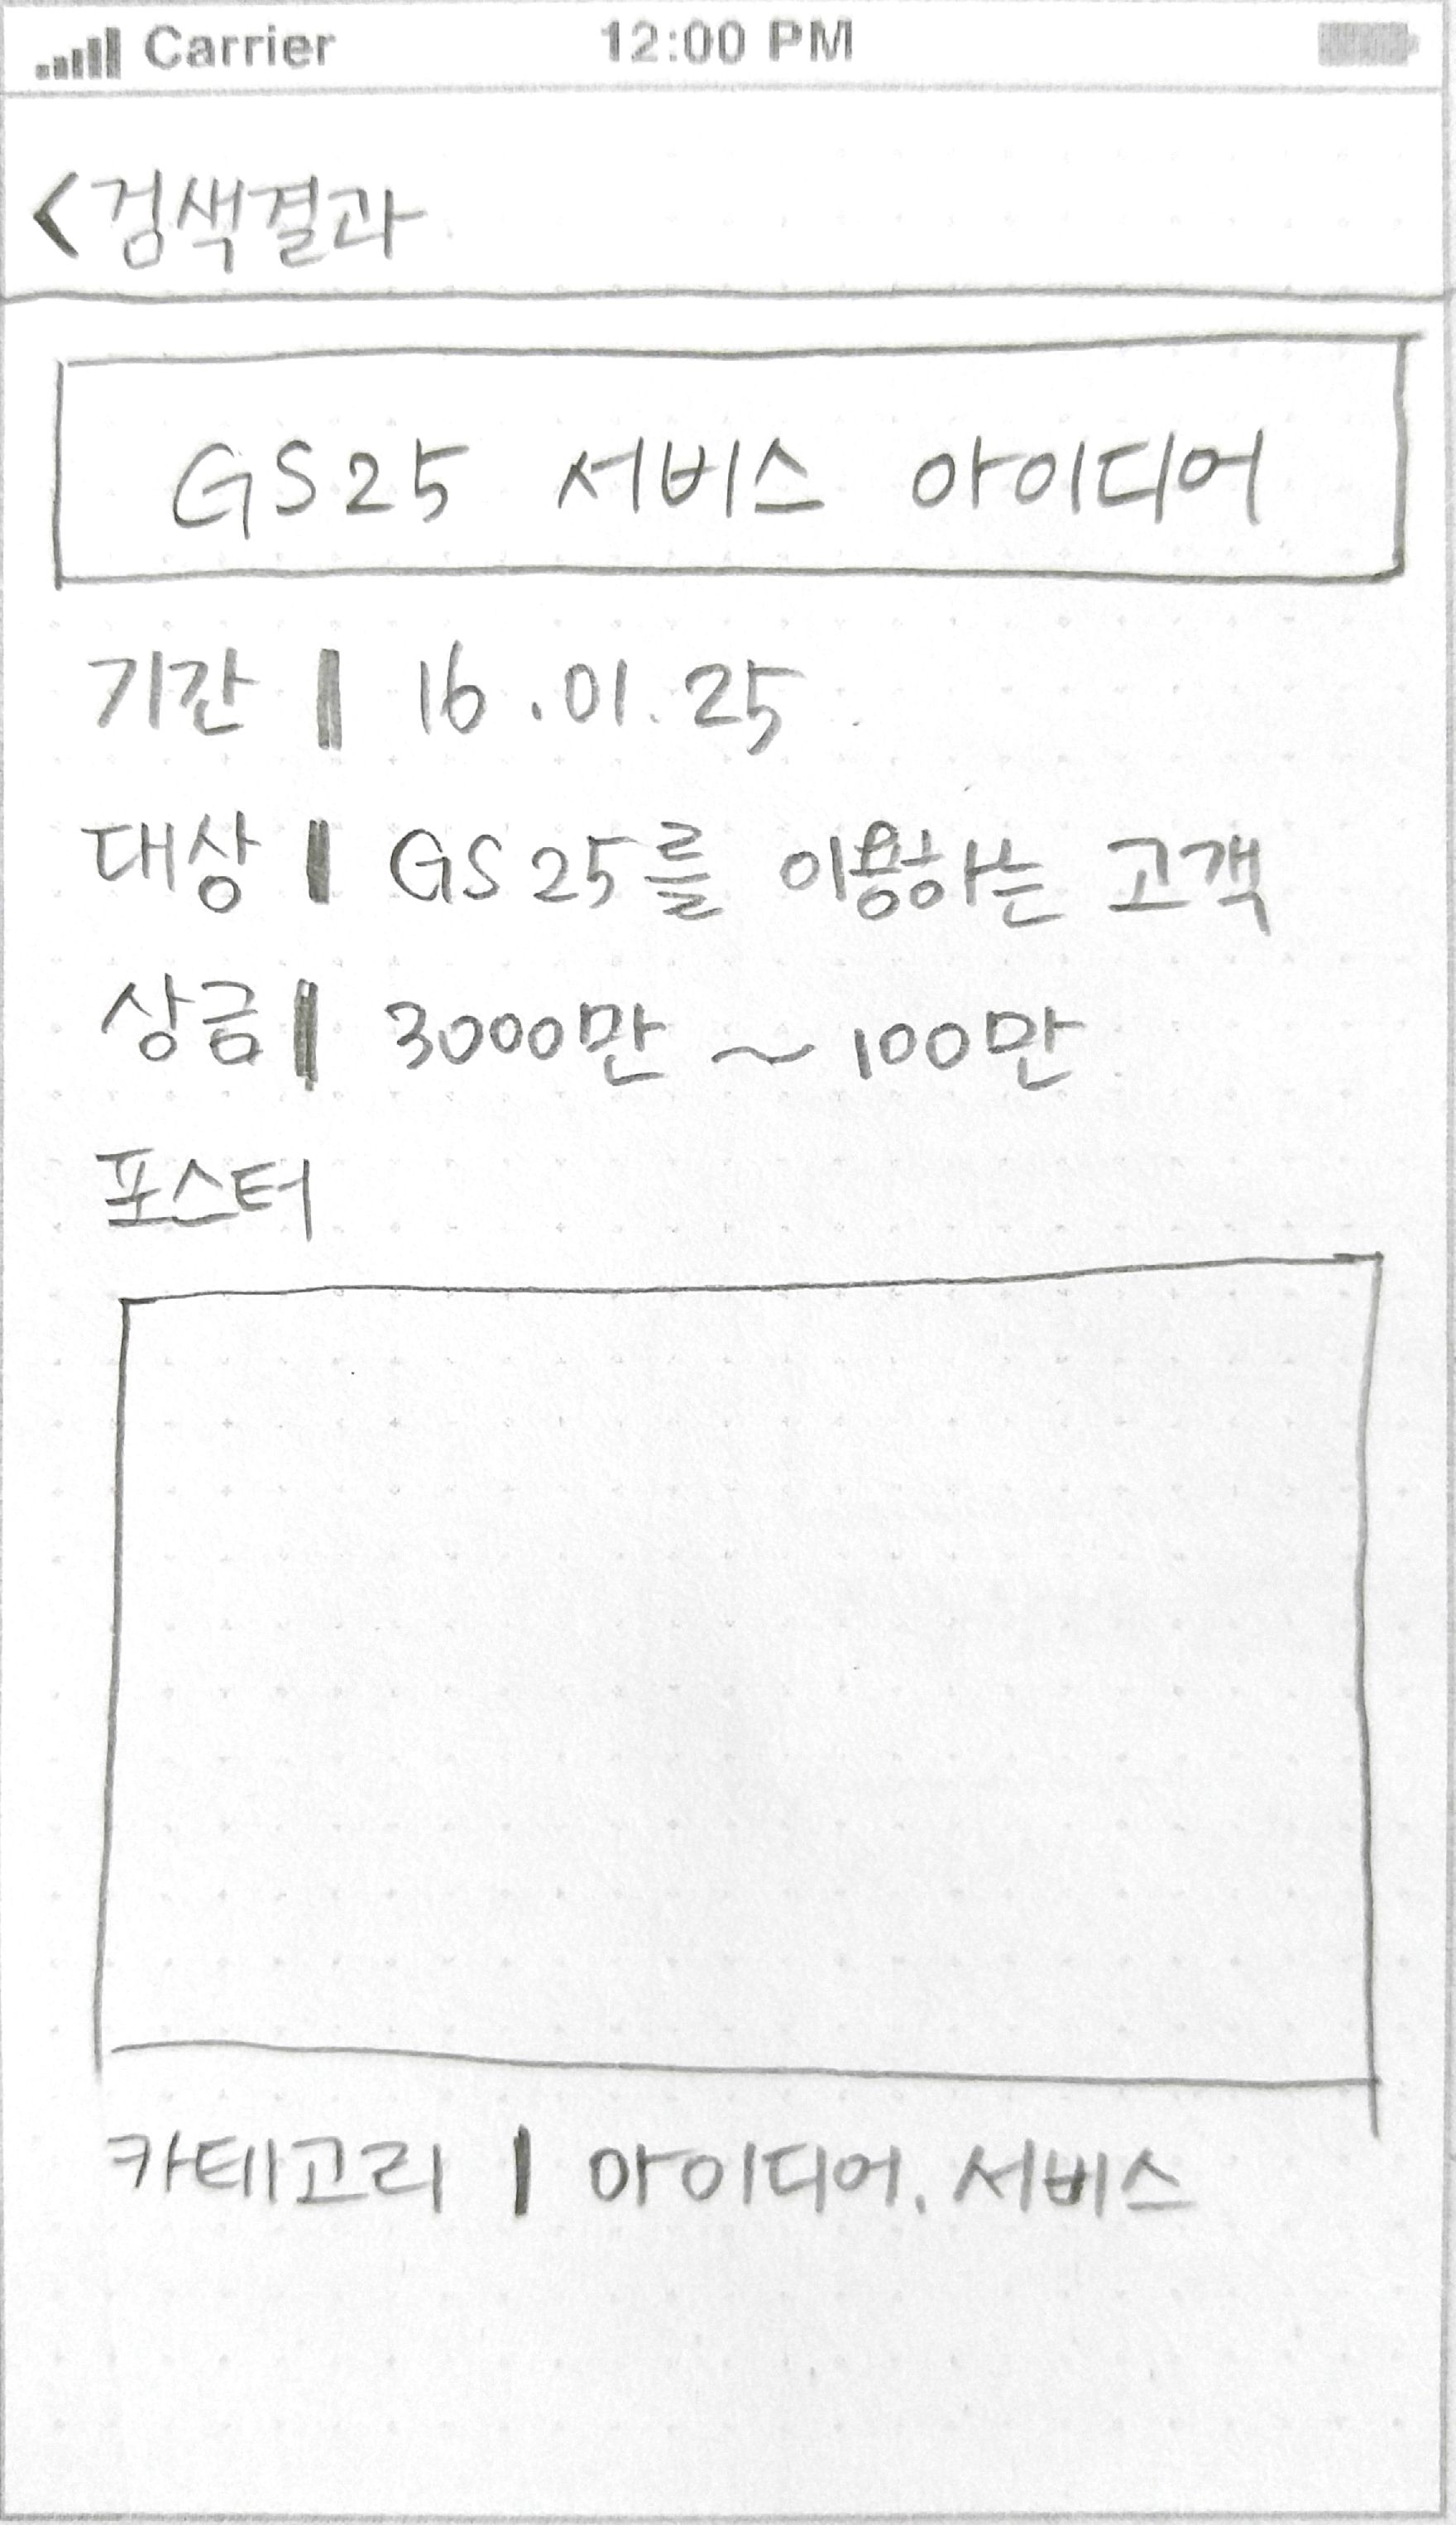 Carrier 12:00 PM
<검색결과
GS25 서비스 아이디어
기간 | 16.01.25
대상 | GS25를 이용하는 고객
상금 | 3000만 ~ 100만
포스터
카테고리 | 아이디어. 서비스